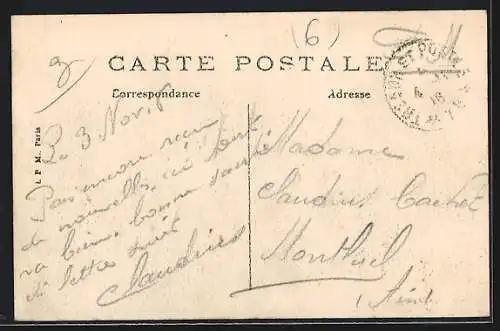 (6)
F.M.
3
CARTE POSTALE
Correspondance
Adresse
TRÉSOR ET POSTES
I. P. M., Paris
Le 3 Nov,
Pas encore rien
de nouvelles, ici tout
va bien bonne santé
lettre suit
Claudius
Madame
Claudius
Montluel
(Ain)